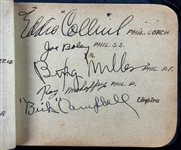 Eddie "Collins" PHIL. COACH
Joe Boley PHIL. S.S.
Bing Miller PHIL. R.F.
Roy Mahaffey PHIL. P.
"Bick" Campbell Umpire